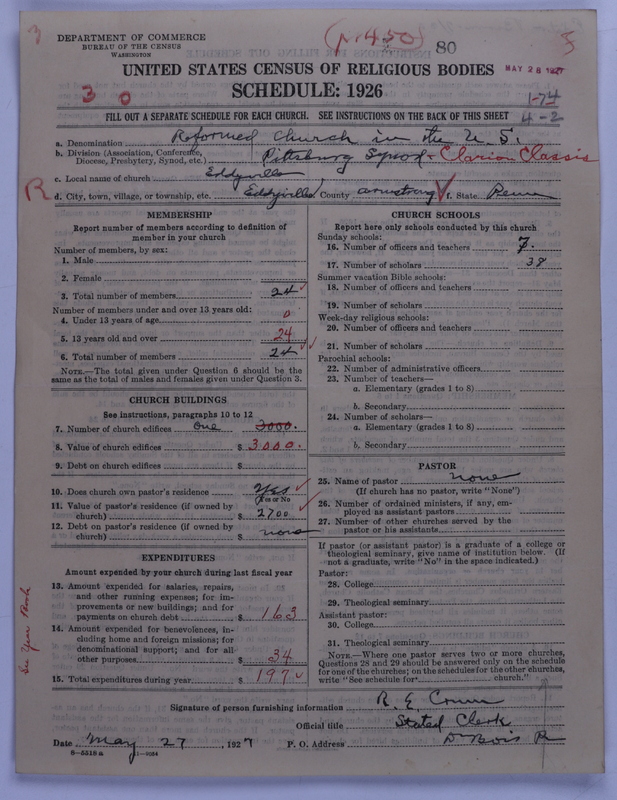 DEPARTMENT OF COMMERCE
BUREAU OF THE CENSUS
WASHINGTON
80
MAY 28 1927
UNITED STATES CENSUS OF RELIGIOUS BODIES
SCHEDULE: 1926
3 0
1-74
4-2
FILL OUT A SEPARATE SCHEDULE FOR EACH CHURCH. SEE INSTRUCTIONS ON THE BACK OF THIS SHEET
a. Denomination Reformed Church in the U.S.
b. Division (Association, Conference, Diocese, Presbytery, Synod, etc.) Pittsburg Synod - Clarion Classis
c. Local name of church Eddyville
R
d. City, town, village, or township, etc. Eddyville County Armstrong f. State Penn
MEMBERSHIP
Report number of members according to definition of member in your church
Number of members, by sex:
1. Male
2. Female
3. Total number of members 24
Number of members under and over 13 years old:
4. Under 13 years of age 0
5. 13 years old and over 24
6. Total number of members 24
NOTE.—The total given under Question 6 should be the same as the total of males and females given under Question 3.
CHURCH BUILDINGS
See instructions, paragraphs 10 to 12
7. Number of church edifices One 3000.
8. Value of church edifices $ 3000.
9. Debt on church edifices $
10. Does church own pastor's residence Yes
Yes or No
11. Value of pastor's residence (if owned by church) $ 2700
12. Debt on pastor's residence (if owned by church) $ none
EXPENDITURES
Amount expended by your church during last fiscal year
13. Amount expended for salaries, repairs, and other running expenses; for improvements or new buildings; and for payments on church debt $ 163
14. Amount expended for benevolences, including home and foreign missions; for denominational support; and for all other purposes $ 34
15. Total expenditures during year $ 197
See Year Book
CHURCH SCHOOLS
Report here only schools conducted by this church
Sunday schools:
16. Number of officers and teachers 7.
17. Number of scholars 38
Summer vacation Bible schools:
18. Number of officers and teachers
19. Number of scholars
Week-day religious schools:
20. Number of officers and teachers
21. Number of scholars
Parochial schools:
22. Number of administrative officers
23. Number of teachers—
a. Elementary (grades 1 to 8)
b. Secondary
24. Number of scholars—
a. Elementary (grades 1 to 8)
b. Secondary
PASTOR
25. Name of pastor none
(If church has no pastor, write "None")
26. Number of ordained ministers, if any, employed as assistant pastors
27. Number of other churches served by the pastor or his assistants
If pastor (or assistant pastor) is a graduate of a college or theological seminary, give name of institution below. (If not a graduate, write "No" in the space indicated.)
Pastor:
28. College
29. Theological seminary
Assistant pastor:
30. College
31. Theological seminary
NOTE.—Where one pastor serves two or more churches, Questions 28 and 29 should be answered only on the schedule for one of the churches; on the schedules for the other churches, write "See schedule for church."
Signature of person furnishing information R. E.
Official title Stated Clerk
Date May 27, 1927 P. O. Address
8-5518 a 11-9084